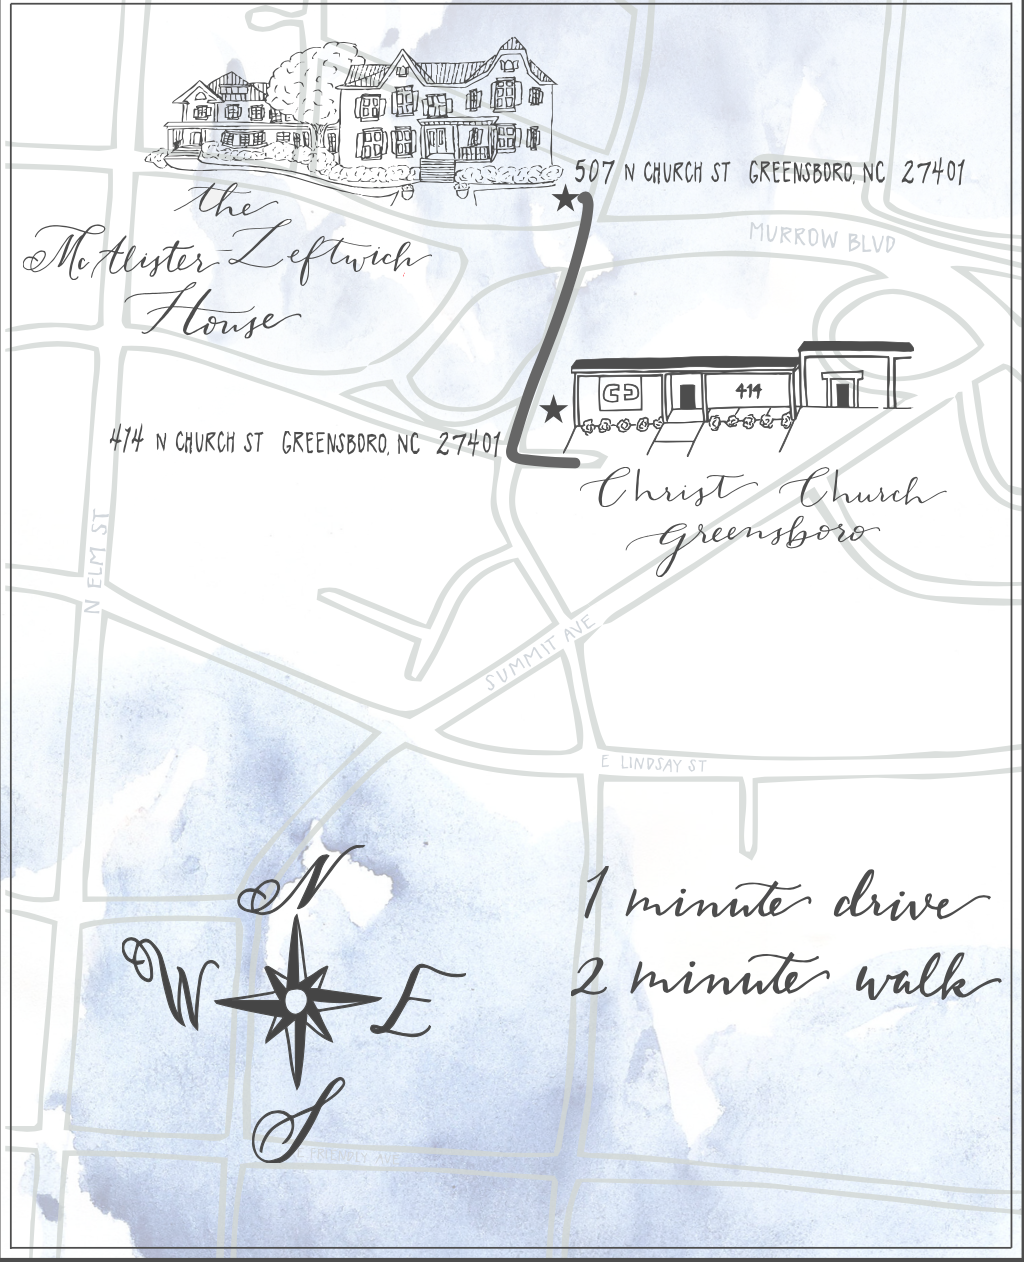 507 N CHURCH ST GREENSBORO, NC 27401
the
McAlister-Leftwich
House
MURROW BLVD
414
414 N CHURCH ST GREENSBORO, NC 27401
Christ Church
Greensboro
N ELM ST
SUMMIT AVE
E LINDSAY ST
N
1 minute drive
W
E
2 minute walk
S
E FRIENDLY AVE